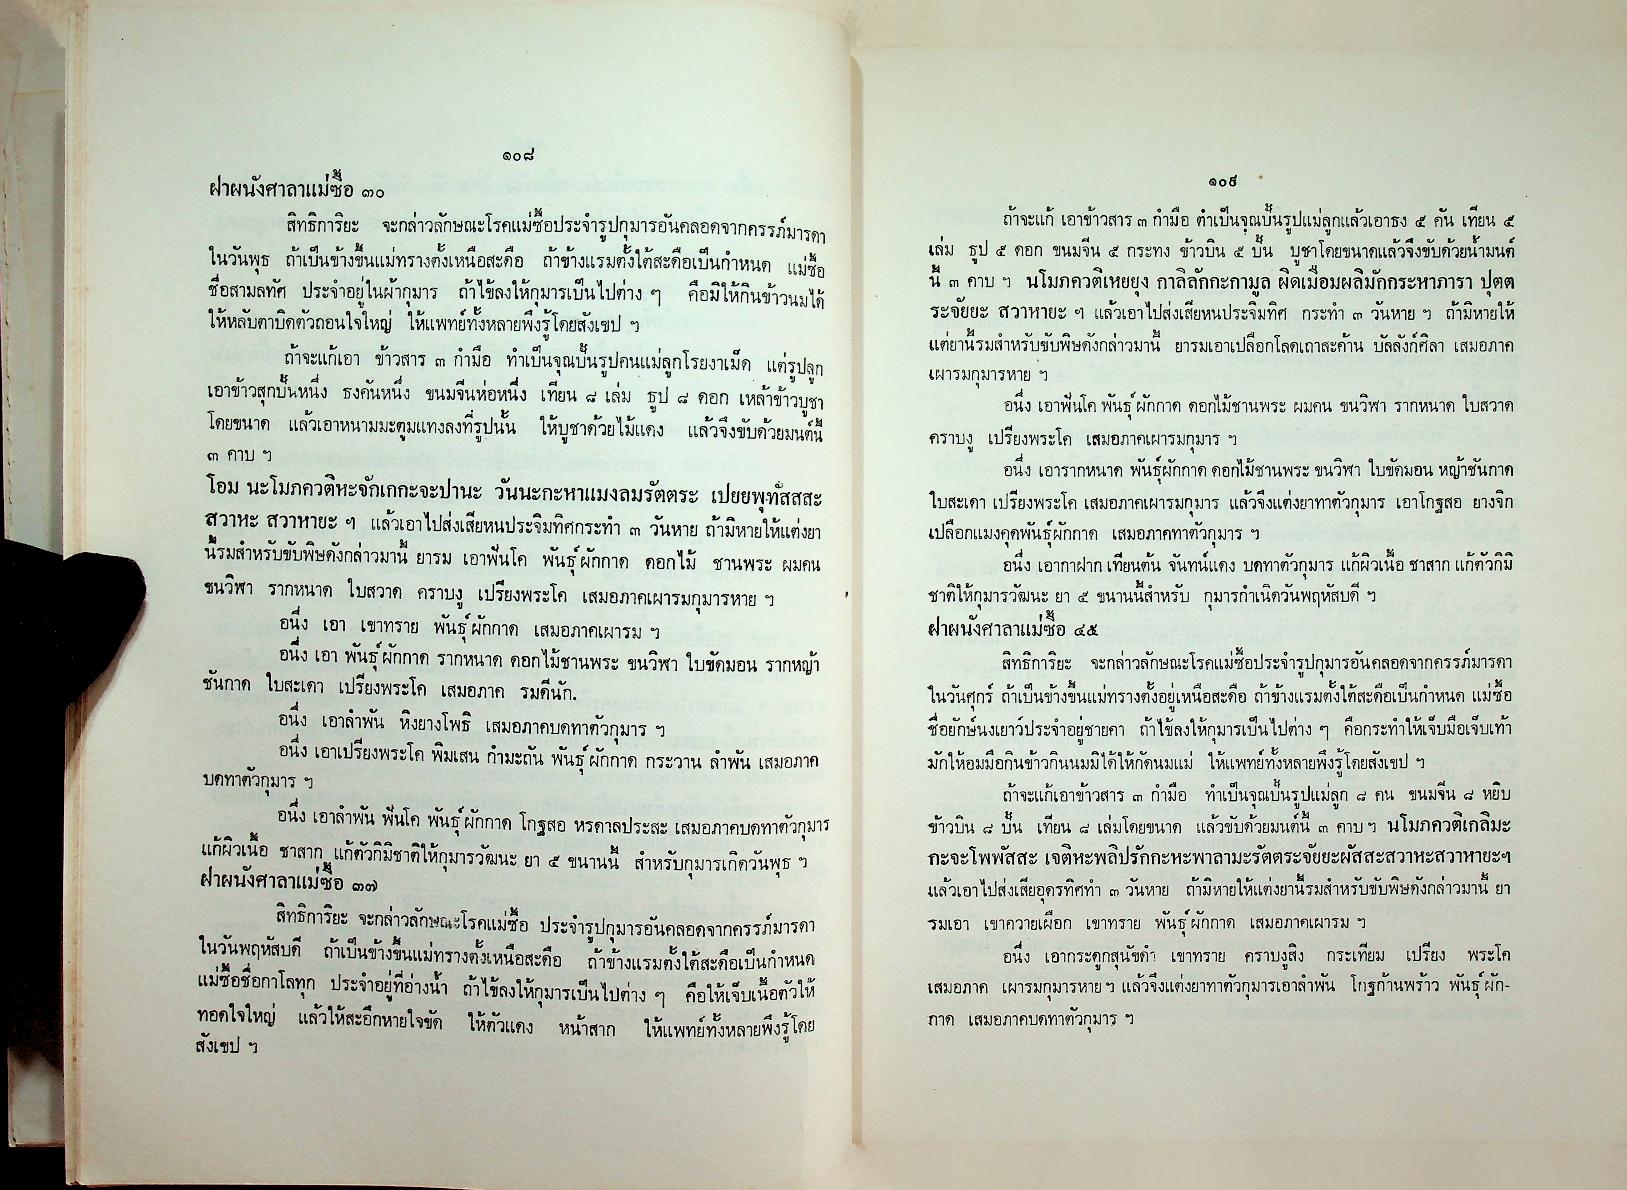 ๑๐๘
ฝาผนังศาลาแม่ซื้อ ๓๐
สิทธิการิยะ จะกล่าวลักษณะโรคแม่ซื้อประจำรูปกุมารอันคลอดจากครรภ์มารดา
ในวันพุธ ถ้าเป็นข้างขึ้นแม่ทรางตั้งเหนือสะดือ ถ้าข้างแรมตั้งใต้สะดือเป็นกำหนด แม่ซื้อ
ชื่อสามลทัศ ประจำอยู่ในผ้ากุมาร ถ้าไข้ลงให้กุมารเป็นไปต่าง ๆ คือมิให้กินข้าวนมได้
ให้หลับตาบิดตัวถอนใจใหญ่ ให้แพทย์ทั้งหลายพึงรู้โดยสังเขป ฯ
ถ้าจะแก้เอา ข้าวสาร ๓ กำมือ ทำเป็นจุณปั้นรูปคนแม่ลูกโรยงาเม็ด แต่รูปลูก
เอาข้าวสุกปั้นหนึ่ง ธงคันหนึ่ง ขนมจีนห่อหนึ่ง เทียน ๘ เล่ม ธูป ๘ ดอก เหล้าข้าวบูชา
โดยขนาด แล้วเอาหนามมะตูมแทงลงที่รูปนั้น ให้บูชาด้วยไม้แดง แล้วจึงขับด้วยมนต์นี้
๓ คาบ ฯ
โอม นะโมภควติหะจักเกกะจะปานะ วันนะกะหาแมงลมรัตตระ เปยยพุทัสสสะ
สวาหะ สวาหายะ ฯ แล้วเอาไปส่งเสียหนประจิมทิศกระทำ ๓ วันหาย ถ้ามิหายให้แต่งยา
นี้รมสำหรับขับพิษดังกล่าวมานี้ ยารม เอาฟันโค พันธุ์ผักกาด ดอกไม้ ชานพระ ผมคน
ขนวิฬา รากหนาด ใบสวาด คราบงู เปรียงพระโค เสมอภาคเผารมกุมารหาย ฯ
อนึ่ง เอา เขาทราย พันธุ์ผักกาด เสมอภาคเผารม ฯ
อนึ่ง เอา พันธุ์ผักกาด รากหนาด ดอกไม้ชานพระ ขนวิฬา ใบขัดมอน รากหญ้า
ชันกาด ใบสะเดา เปรียงพระโค เสมอภาค รมดีนัก.
อนึ่ง เอาลำพัน หิงยางโพธิ เสมอภาคบดทาตัวกุมาร ฯ
อนึ่ง เอาเปรียงพระโค พิมเสน กำมะถัน พันธุ์ผักกาด กระวาน ลำพัน เสมอภาค
บดทาตัวกุมาร ฯ
อนึ่ง เอาลำพัน ฟันโค พันธุ์ผักกาด โกฐสอ หรดาลประสะ เสมอภาคบดทาตัวกุมาร
แก้ผิวเนื้อ ชาสาก แก้ตัวกิมิชาติให้กุมารวัฒนะ ยา ๕ ขนานนี้ สำหรับกุมารเกิดวันพุธ ฯ
ฝาผนังศาลาแม่ซื้อ ๓๗
สิทธิการิยะ จะกล่าวลักษณะโรคแม่ซื้อ ประจำรูปกุมารอันคลอดจากครรภ์มารดา
ในวันพฤหัสบดี ถ้าเป็นข้างขึ้นแม่ทรางตั้งเหนือสะดือ ถ้าข้างแรมตั้งใต้สะดือเป็นกำหนด
แม่ซื้อชื่อกาโลทุก ประจำอยู่ที่อ่างน้ำ ถ้าไข้ลงให้กุมารเป็นไปต่าง ๆ คือให้เจ็บเนื้อตัวให้
ทอดใจใหญ่ แล้วให้สะอึกหายใจขัด ให้ตัวแดง หน้าสาก ให้แพทย์ทั้งหลายพึงรู้โดย
สังเขป ฯ
๑๐๙
ถ้าจะแก้ เอาข้าวสาร ๓ กำมือ ตำเป็นจุณปั้นรูปแม่ลูกแล้วเอาธง ๕ คัน เทียน ๕
เล่ม ธูป ๕ ดอก ขนมจีน ๕ กระทง ข้าวบิน ๕ ปั้น บูชาโดยขนาดแล้วจึงขับด้วยน้ำมนต์
นี้ ๓ คาบ ฯ นโมภควติเหยยุง กาลิลักกะกามูล ผิดเมื่อมผลิมักกระหาภารา ปุตต
ระจัยยะ สวาหายะ ฯ แล้วเอาไปส่งเสียหนประจิมทิศ กระทำ ๓ วันหาย ฯ ถ้ามิหายให้
แต่ยานี้รมสำหรับขับพิษดังกล่าวมานี้ ยารมเอาเปลือกโลดเถาสะค้าน บัลลังก์ศิลา เสมอภาค
เผารมกุมารหาย ฯ
อนึ่ง เอาฟันโค พันธุ์ผักกาด ดอกไม้ชานพระ ผมคน ขนวิฬา รากหนาด ใบสวาด
คราบงู เปรียงพระโค เสมอภาคเผารมกุมาร ฯ
อนึ่ง เอารากหนาด พันธุ์ผักกาด ดอกไม้ชานพระ ขนวิฬา ใบขัดมอน หญ้าชันกาด
ใบสะเดา เปรียงพระโค เสมอภาคเผารมกุมาร แล้วจึงแต่งยาทาตัวกุมาร เอาโกฐสอ ยางจิก
เปลือกแมงคุดพันธุ์ผักกาด เสมอภาคทาตัวกุมาร ฯ
อนึ่ง เอากาฝาก เทียนต้น จันทน์แดง บดทาตัวกุมาร แก้ผิวเนื้อ ชาสาก แก้ตัวกิมิ
ชาติให้กุมารวัฒนะ ยา ๕ ขนานนี้สำหรับ กุมารกำเนิดวันพฤหัสบดี ฯ
ฝาผนังศาลาแม่ซื้อ ๔๕
สิทธิการิยะ จะกล่าวลักษณะโรคแม่ซื้อประจำรูปกุมารอันคลอดจากครรภ์มารดา
ในวันศุกร์ ถ้าเป็นข้างขึ้นแม่ทรางตั้งอยู่เหนือสะดือ ถ้าข้างแรมตั้งใต้สะดือเป็นกำหนด แม่ซื้อ
ชื่อยักษ์นงเยาว์ประจำอยู่ชายคา ถ้าไข้ลงให้กุมารเป็นไปต่าง ๆ คือกระทำให้เจ็บมือเจ็บเท้า
มักให้อมมือกินข้าวกินนมมิได้ให้กัดนมแม่ ให้แพทย์ทั้งหลายพึงรู้โดยสังเขป ฯ
ถ้าจะแก้เอาข้าวสาร ๓ กำมือ ทำเป็นจุณปั้นรูปแม่ลูก ๘ คน ขนมจีน ๘ หยิบ
ข้าวบิน ๘ ปั้น เทียน ๘ เล่มโดยขนาด แล้วขับด้วยมนต์นี้ ๓ คาบ ฯ นโมภควติเกลิมะ
กะจะโพพัสสะ เจติหะพลิปรักกะหะพาลามะรัตตระจัยยะผัสสะสวาหะสวาหายะฯ
แล้วเอาไปส่งเสียอุดรทิศทำ ๓ วันหาย ถ้ามิหายให้แต่งยานี้รมสำหรับขับพิษดังกล่าวมานี้ ยา
รมเอา เขาควายเผือก เขาทราย พันธุ์ผักกาด เสมอภาคเผารม ฯ
อนึ่ง เอากระดูกสุนัขดำ เขาทราย คราบงูสิง กระเทียม เปรียง พระโค
เสมอภาค เผารมกุมารหาย ฯ แล้วจึงแต่งยาทาตัวกุมารเอาลำพัน โกฐก้านพร้าว พันธุ์ผัก-
กาด เสมอภาคบดทาตัวกุมาร ฯ